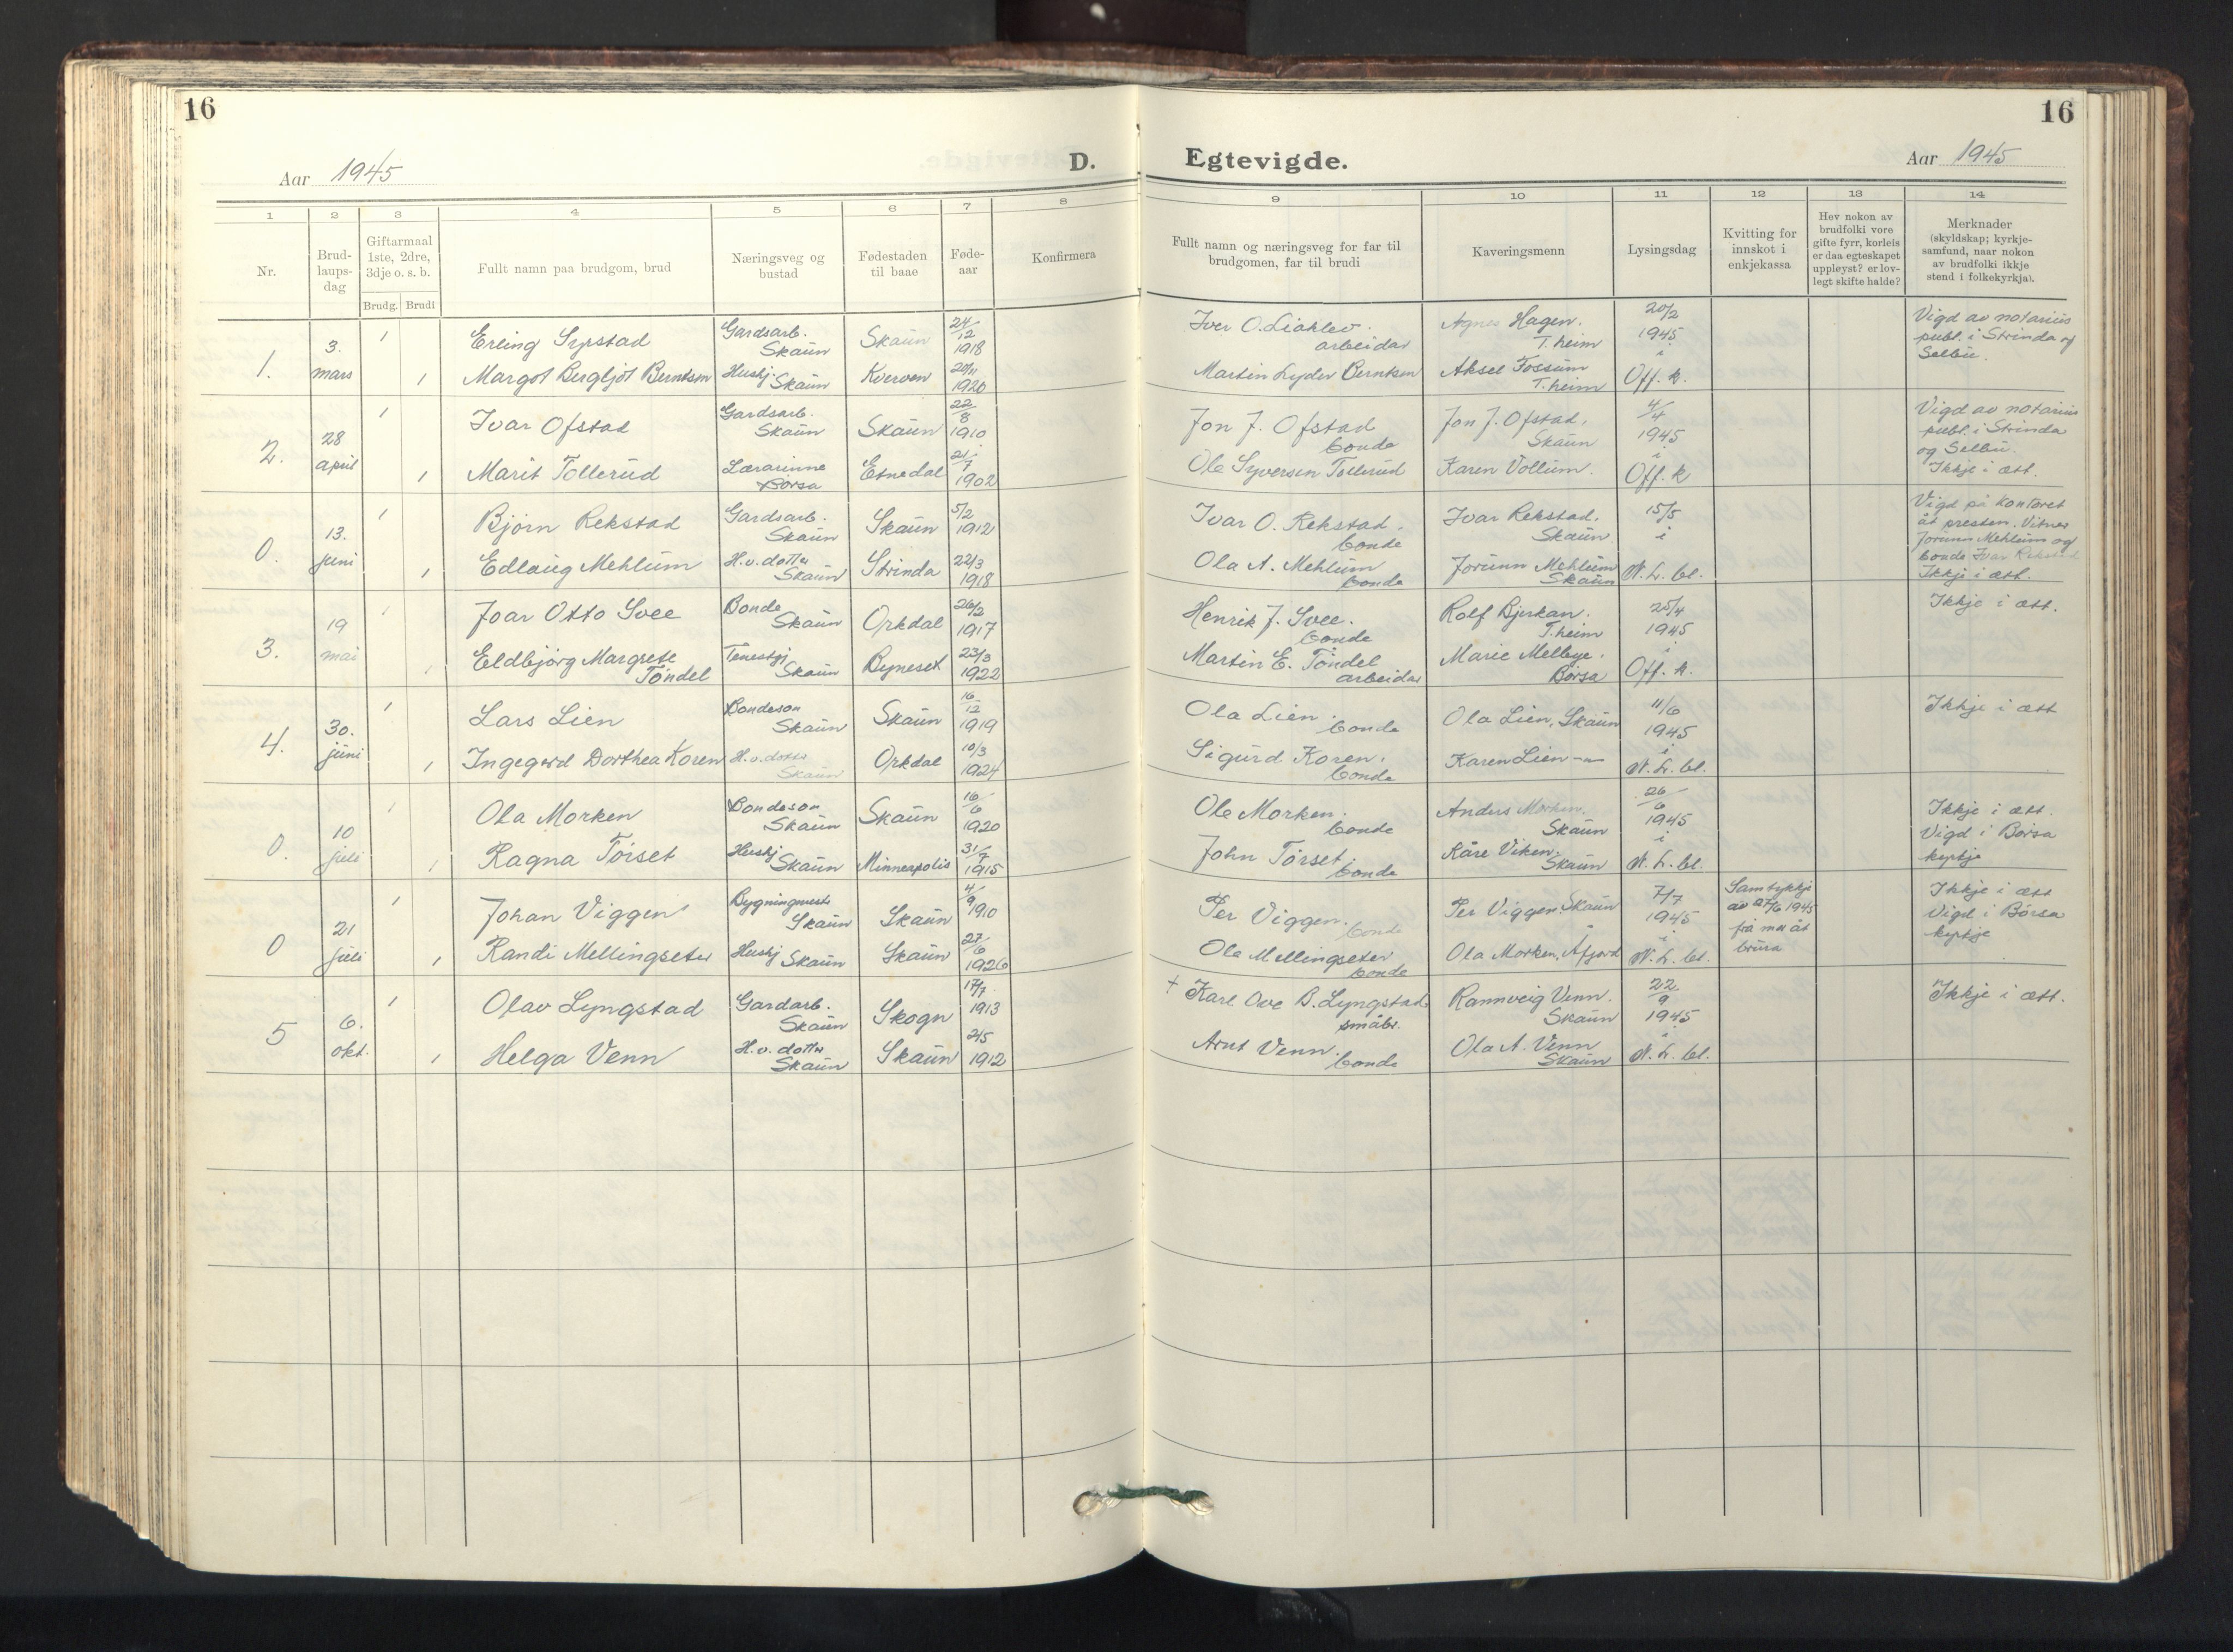 16
16
Aar 1945
D.
Egtevigde.
Aar 1945
1 2 3 4 5 6 7 8 9 10 11 12 13 14
Nr.
Brud-
laups-
dag
Giftarmaal
1ste, 2dre,
3dje o. s. b.
Brudg. Brudi
Fullt namn paa brudgom, brud
Næringsveg og
bustad
Fødestaden
til baae
Føde-
aar
Konfirmera
Fullt namn og næringsveg for far til
brudgomen, far til brudi
Kaveringsmenn
Lysingsdag
Kvitting for
innskot i
enkjekassa
Hev nokon av
brudfolki vore
gifte fyrr, korleis
er daa egteskapet
uppløyst? er lov-
legt skifte halde?
Merknader
(skyldskap; kyrkje-
samfund, naar nokon
av brudfolki ikkje
stend i folkekyrkja).
1.
3.
mars
1
1
Erling
Margot Bergljot Berntsen
Gardsarb.
Skaun
Hushj Skaun
Skaun
Kverven
24/12
1918
20/11
1920
Iver O.
arbeidar
Martin Lyder Berntsen
Agnes Hagen.
T.heim
Aksel Fossum
T.heim
20/2
1945
i
Off. k.
Vigd av notarius
publ. i Strinda og
Selbu.
2.
28
april
1
1
Ivar Ofstad
Marit Tollerud
Gardsarb.
Skaun
Lærarinne
Børsa
Skaun
Etnedal
22/8
1910
21/7
1902
Jon J. Ofstad
bonde
Ole Syversen Tollerud
Jon J. Ofstad.
Skaun
Karen Vollum.
4/4
1945
i
Off. k
Vigd av notarius
publ. i Strinda
og Selbu.
Ikkje i ætt.
0.
13.
juni
1
1
Bjørn Rekstad
Edlaug Mehlum
Gardsarb.
Skaun
H.v. dotter
Skaun
Skaun
Strinda
5/2
1912
22/3
1918
Ivar O. Rekstad.
bonde
Ola A. Mehlum
bonde
Ivar Rekstad.
Skaun
Jorunn Mehlum
Skaun
15/5
i
N. L. bl.
Vigd på kontoret
åt presten. Vitner
Jorunn Mehlum og
bonde Ivar Rekstad
Ikkje i ætt.
3.
19
mai
1
1
Joar Otto Svee
Eldbjørg Margrete
Tøndel
Bonde
Skaun
Tenestgj
Skaun
Orkdal
Byneset
26/2
1917
23/3
1922
Henrik J. Svee.
bonde
Martin E. Tøndel
arbeidar
Rolf Bjerkan.
T.heim
Marie Melbye.
Børsa
25/4
1945
i
Off. k.
Ikkje i ætt.
4.
30.
juni
1
1
Lars Lien
Ingegerd Dorthea Koren
Bondeson
Skaun
H.v. dotter
Skaun
Skaun
Orkdal
16/12
1919
10/3
1924
Ola Lien.
bonde
Sigurd Koren.
bonde
Ola Lien, Skaun
Karen Lien -"-
11/6
1945
i
N. L. bl.
Ikkje i ætt
0.
10
juli
1
1
Ola Morken
Ragna Tørset
Bondeson
Skaun
Hushj
Skaun
Skaun
Minneapolis
16/6
1920
31/7
1915
Ole Morken.
bonde
John Tørset.
bonde
Anders Morken.
Skaun
Kåre Viken.
Skaun
26/6
1945
i
N. L. bl.
Ikkje i ætt.
Vigd i Børsa
kyrkje
0
21
juli
1
1
Johan Viggen
Randi Mellingseter
Bygningsmest.
Skaun
Hushj Skaun
Skaun
Skaun
4/9
1910
27/6
1926
Per Viggen.
bonde
Ole Mellingseter
bonde
Per Viggen. Skaun
Ola Morken, Åfjord
7/7
1945
i
N. L. bl.
Samtykkje
av 27/6 1945
frå mor åt
brura
Ikkje i ætt
Vigd i Børsa
kyrkje
5
6.
okt.
1
1
Olav Lyngstad
Helga Venn
Gardarb.
Skaun
H.v. dotter
Skaun
Skogn
Skaun
17/7
1913
24/5
1912
+ Karl Ove B. Lyngstad
småbr.
Arnt Venn.
bonde
Rannveig Venn.
Skaun
Ola A. Venn
Skaun
22/9
1945
i
N. L. bl.
Ikkje i ætt.